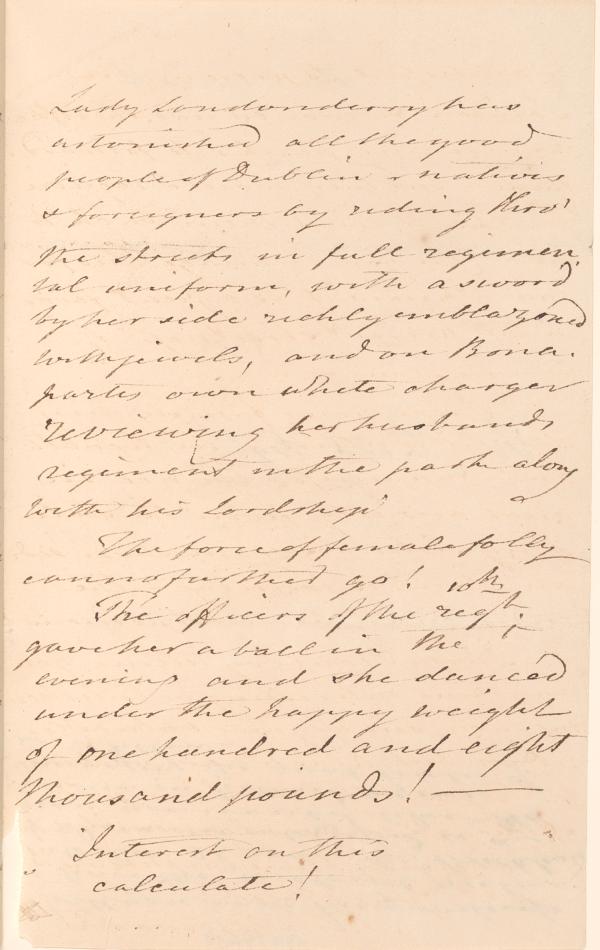 Lady Londonderry has
astonished all the good
people of Dublin natives
& foreigners by riding thro'
the streets in full regimen
tal uniform, with a sword
by her side richly emblazoned
with jewels, and on Bona-
partes own white charger
reviewing her husbands
regiment in the park along
with his Lordship
The force of female folly
cannot further go!
The officers of the 10th regt.
gave her a ball in the
evening and she danced
under the happy weight
of one hundred and eight
thousand pounds! —
Interest on this
calculate!